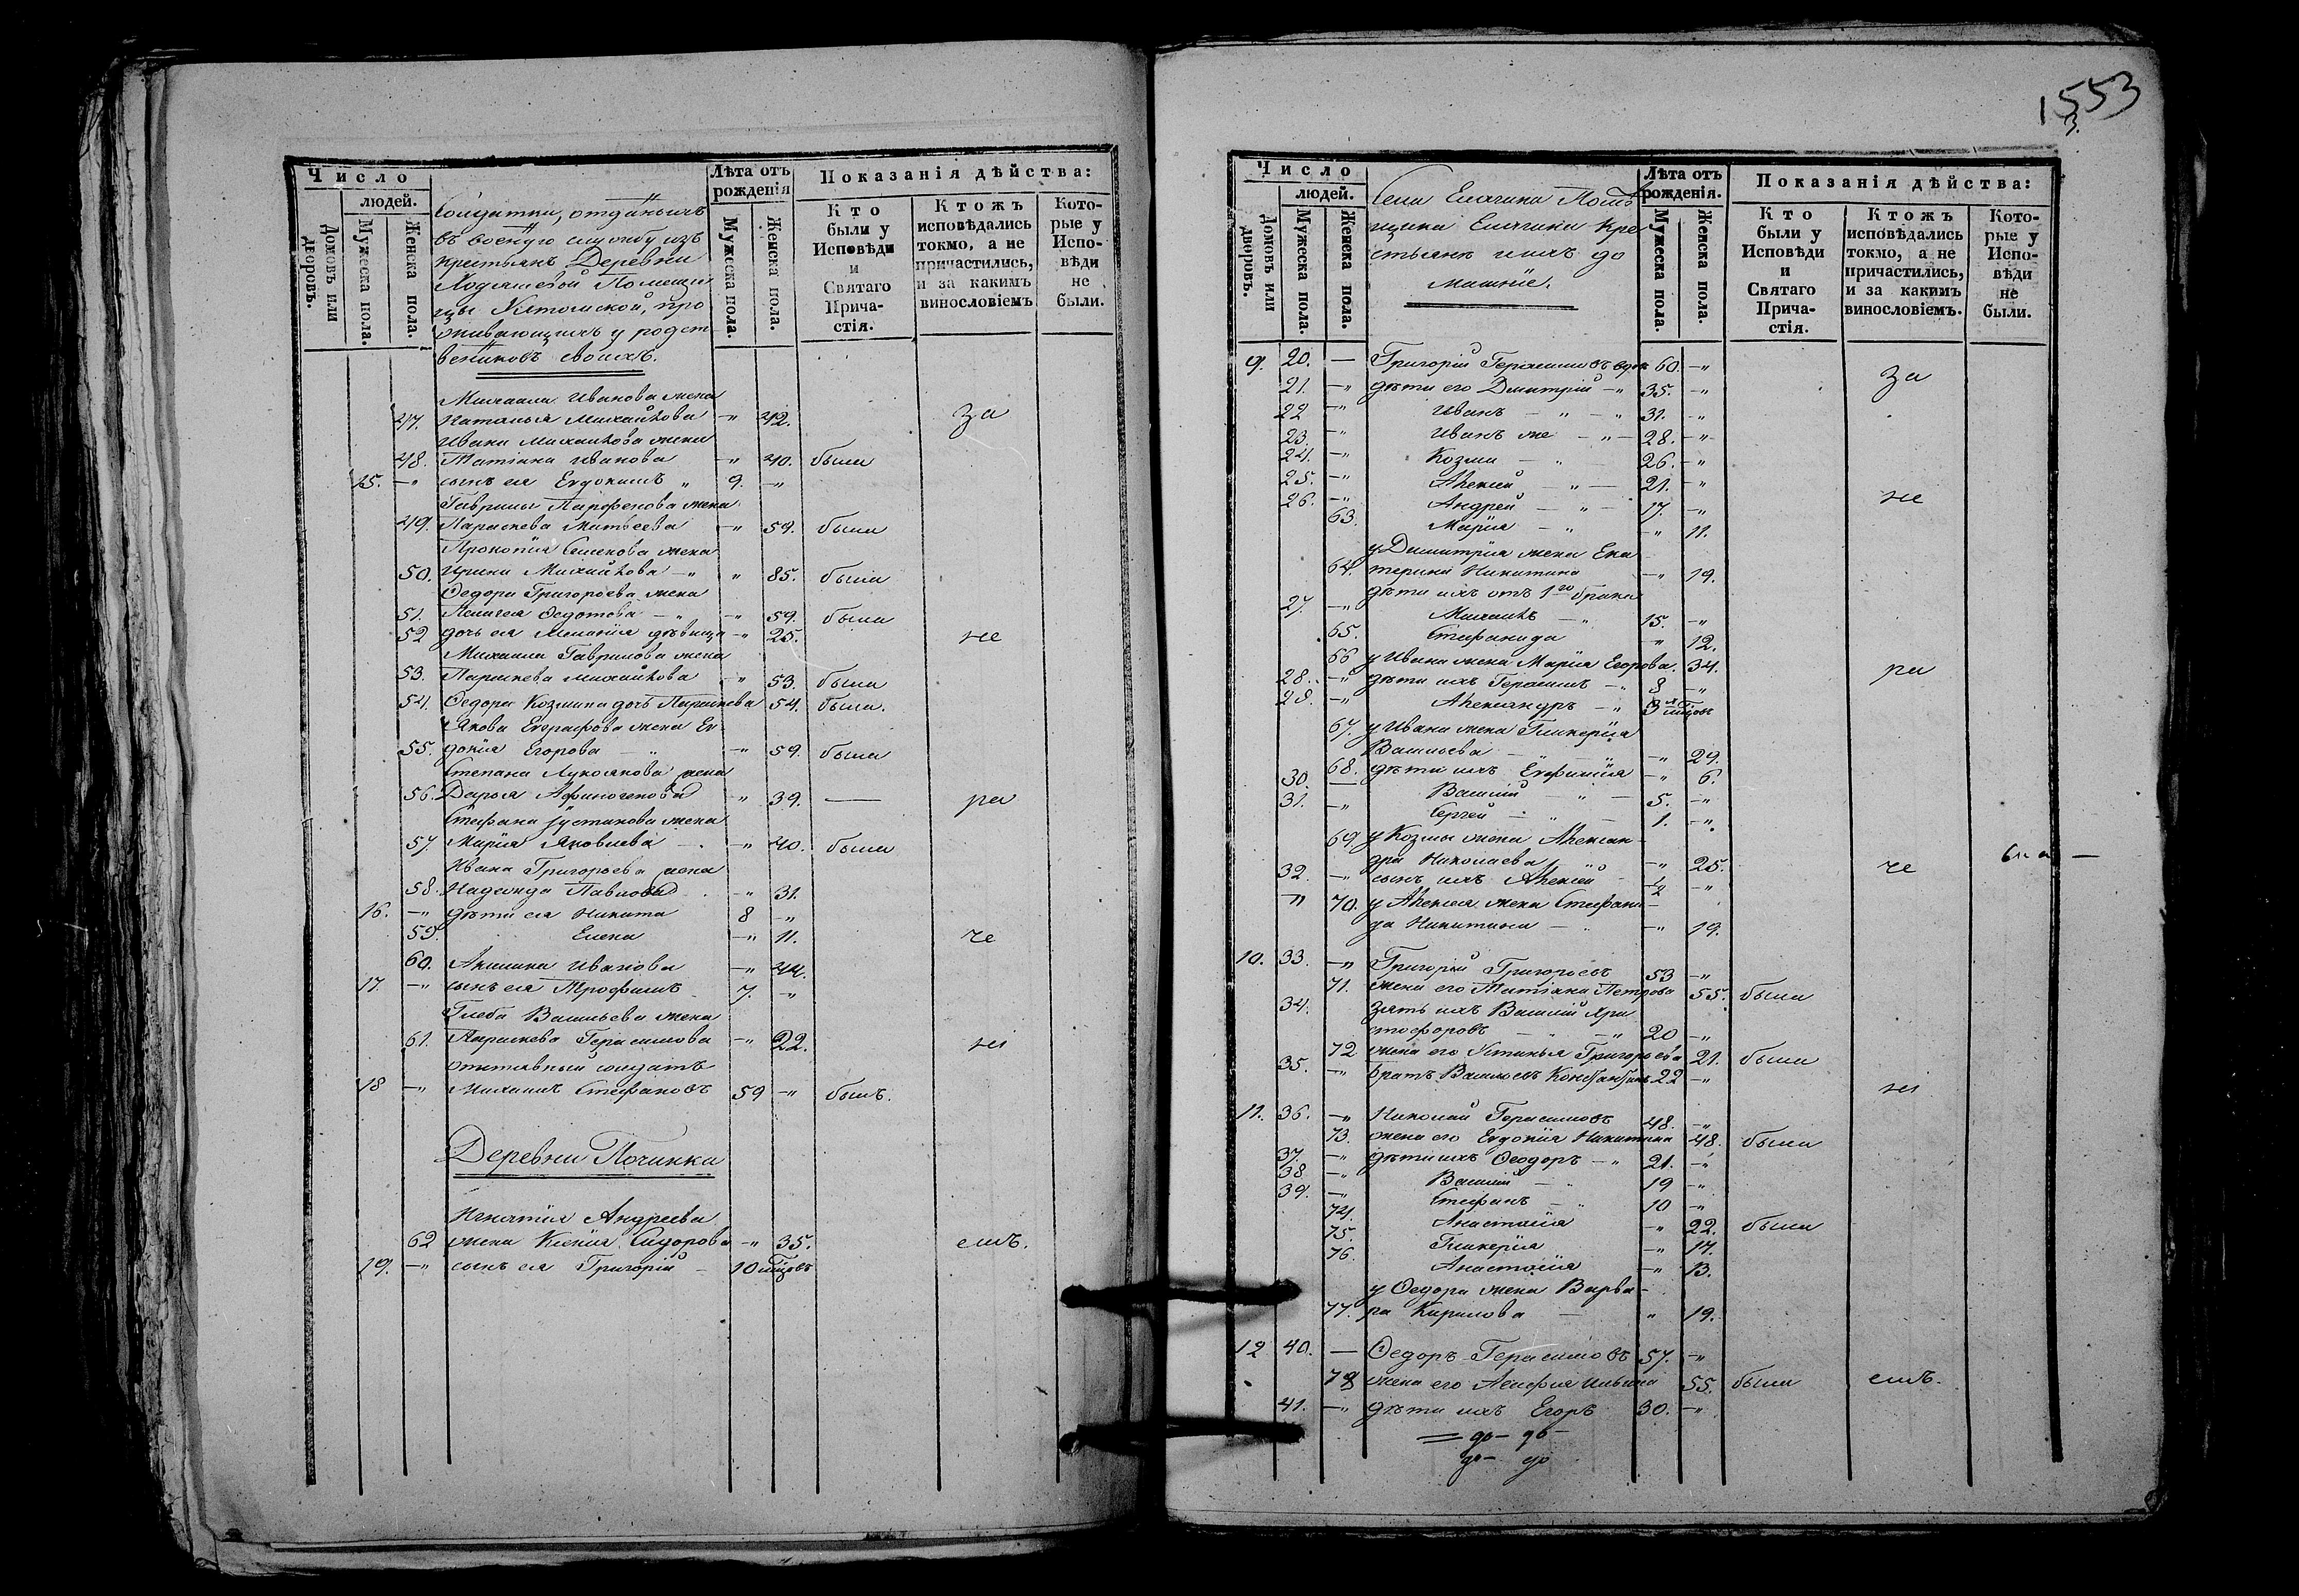 1553
3.
Число
людей.
Домовъ или дворовъ.
Мужеска пола.
Женска пола.
Солдатки, отданыхъ
въ военую службу изъ
крестьянъ Деревни
Помещи
цы проживающихъ у родст
венниковъ своихъ.
Лѣта отъ рожденія
Мужеска пола.
Женска пола.
Показанія дѣйства:
Кто были у Исповѣди и Святаго Прича-стія.
Ктожъ исповѣдались токмо, а не причастились, и за какимъ винословіемъ
Кото-рые у Испо-вѣди не были.
Михаила Иванова жена
47. Наталья Михайлова -" 42. за
Ивана Михайлова жена
48. Татіана Иванова -" 40. была
15. -" сынъ ея Евдокимъ " 9. -"
Гаврилы Парфенова жена
49. Параскева Матвеева -" 59. была
Прокопія Семенова жена
50. Ирина Михайлова -" " 85. была
Федора Григорьева жена
51. Федотова -" -" 59. была
52 дочь ея Меланія дѣвица -" 25. не
Михаила Гаврилова жена
53. Параскева Михайлова -" 53. была
54. Федора Козмина дочь Параскева 54. была.
Якова Евграфова жена Ев
55. докія Егорова - " -" 59. была
Степана Лукоянова жена
56. Дарья Афиногенова " 39. — ра
Стефана Іустинова жена
57. Марія Яковлева - . -" 40. была
Ивана Григорьева жена
58. Надежда Павлова . -" 31.
16. -" дѣти ея Никита 8 -"
59. Елена -" 11. че
60. Акилина Иванова -" 44.
17. -" сынъ ея Трофимъ 7. -"
Глеба Васильева жена
61. Параскева Герасимова -" 22. ні
отставный солдатъ
18 -" Михаилъ Стефановъ 59 -" былъ.
Деревни Починка
Игнатія Андреева
62 жена Ксенія Сидорова -" 35. емъ.
19. -" сынъ ея Григорій - 10 мѣцовъ
Число
людей.
Домовъ или дворовъ.
Мужеска пола.
Женска пола.
Села Елагина Помѣ
щика Елагина Кре
стьянъ ихъ до
машніе.
Лѣта отъ рожденія.
Мужеска пола.
Женска пола.
Показанія дѣйства:
Кто были у Исповѣди и Святаго Прича-стія.
Ктожъ исповѣдались токмо, а не причастились, и за какимъ винословіемъ.
Кото-рые у Испо-вѣди не были.
9. 20. — Григорій Герасимовъ вдов 60. -" за
21. -" дѣти его Дмитрій -" 35. -"
22 -" Иванъ - " - " 31. -"
23. -" Иванъ же - " - 28. -"
24. -" Козма - " - 26. -"
25. -" Алексѣй - " - 21. -"
26. -" Андрей - " - 17. -" не
63. Марія - " " 11.
у Димитрія жена Ека
64. терина Никитина -" 19.
дѣти ихъ отъ 1го брака
27. -" Михаилъ - " 15. -"
65. Стефанида " 12.
66 у Ивана жена Марія Егорова. 34. ра
28. -" дѣти ихъ Герасимъ -" 8 -"
29. -" Александръ -" 3 мѣцовъ
67. у Ивана жена Гликерія
Васильева - " -" 29.
68. дѣти ихъ Евфимія -" 6.
30. — Василій " - 5. -"
31. -" Сергей - " - 1. -"
69 у Козмы жена Алексан-
дра Николаева " -" 25.
32. -" сынъ ихъ Алексѣй - ½ -" че
" 70. у Алексѣя жена Стефани-
да Никитина - . -" 19.
10. 33. -" Григорій Григорьевъ 53 -"
71. жена его Татіана Петрова 55. была
34. зять ихъ Василій Хри
стофоровъ - " - " 20 -"
72 жена его Устинья Григорьева 21. была
35. -" братъ Васильевъ Константинъ 22 -" ні
11. 36. -" Николай Герасимовъ 48. -"
73. жена его Евдокія Никитина 48. была
37. -" дѣти ихъ Феодоръ -" 21. -"
38. -" Василій - " 19 -"
39. -" Стефанъ - " 10 -"
74. Анастасія " 22. была
75. Гликерія -" 17.
76. Анастасія -" 13.
у Федора жена Варва-
77. ра Кирилова - " 19.
12 40. — Федоръ Герасимовъ 57. -"
78 жена его Агафия Ильина 55. была емъ.
41. -" дѣти ихъ Егоръ 30. -"